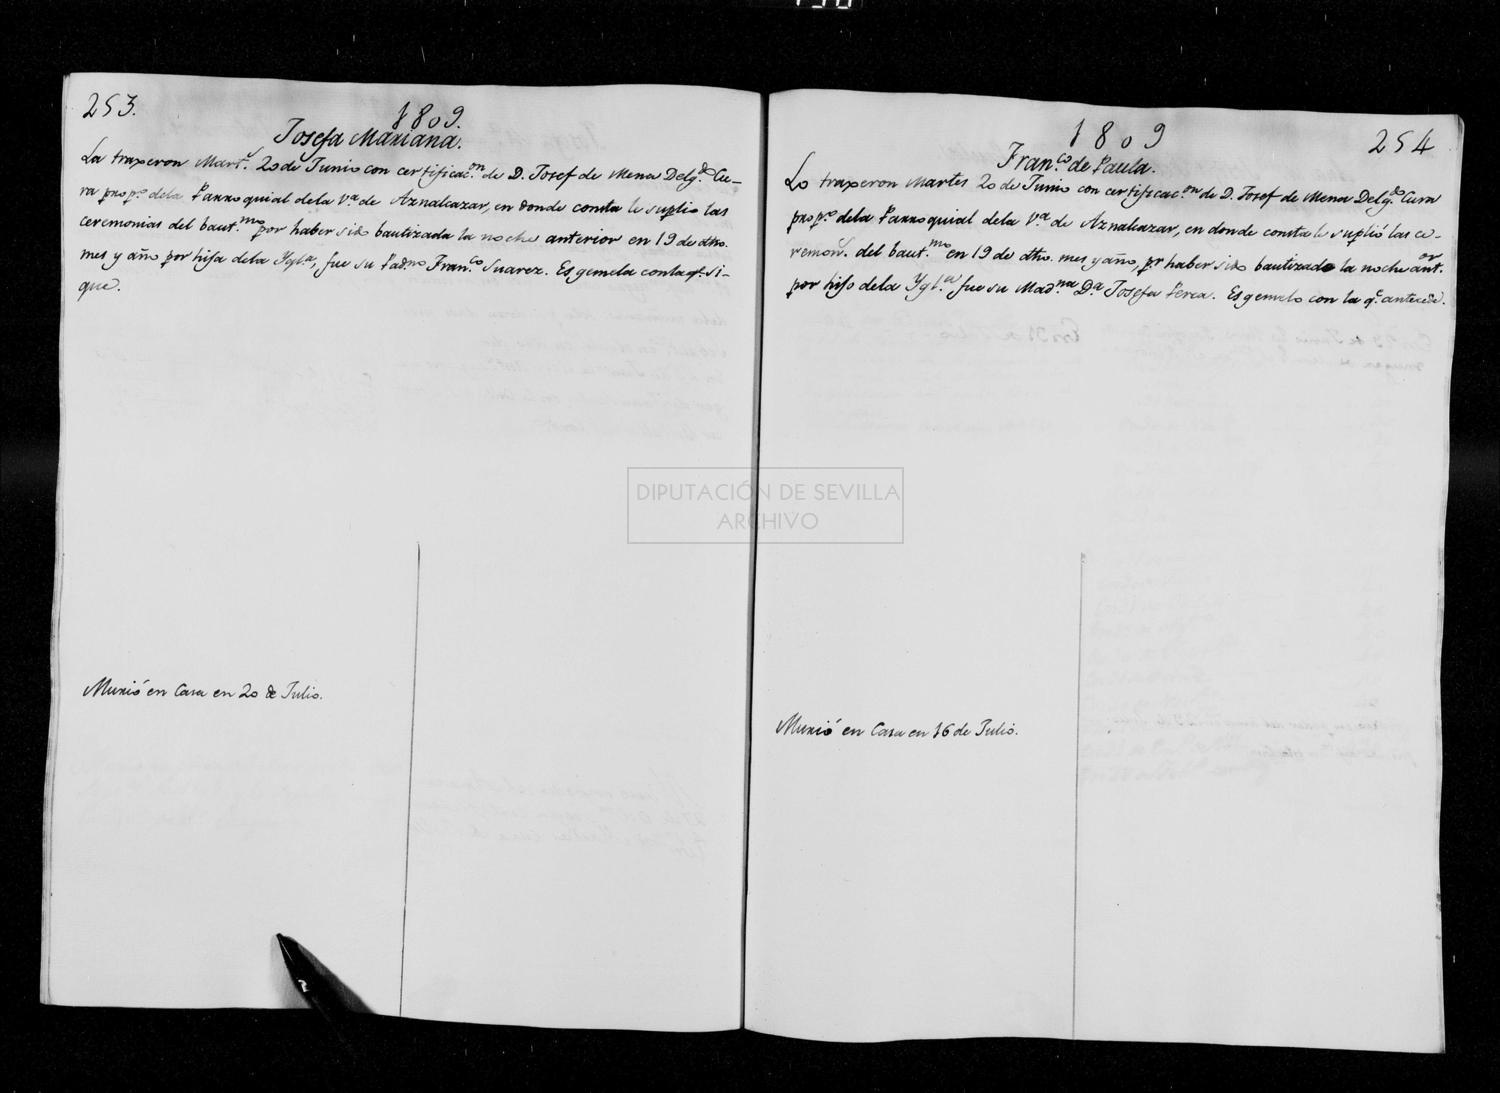 253.
1809.
Josefa Mariana.
La traxeron Mart.s 20 de Junio con certificac.on de D. Josef de Mena Delg.do Cu-
ra prop.o dela Parroquial dela V.a de Aznalcazar, en donde consta le suplio las
ceremonias del baut.mo por haber sido bautizada la noche anterior en 19 de dho.
mes y año por hija dela Ygl.a, fue su Pad.no Fran.co Suarez. Es gemela con la q.e si-
gue.
Murió en Casa en 20 de Julio.
1809
254
Fran.co de Paula.
Lo traxeron Martes 20 de Junio con certificac.on de D. Josef de Mena Delg.do Cura
prop.o dela Parroquial dela V.a de Aznalcazar, en donde consta le suplió las ce-
remon.s del baut.mo en 19 de dho. mes y año, pr haber sido bautizado la noche ant.or
por hijo dela Ygl.a fue su Mad.na D.a Josefa Perea. Es gemelo con la q.e antecede.
Murió en Casa en 16 de Julio.
DIPUTACIÓN DE SEVILLA
ARCHIVO